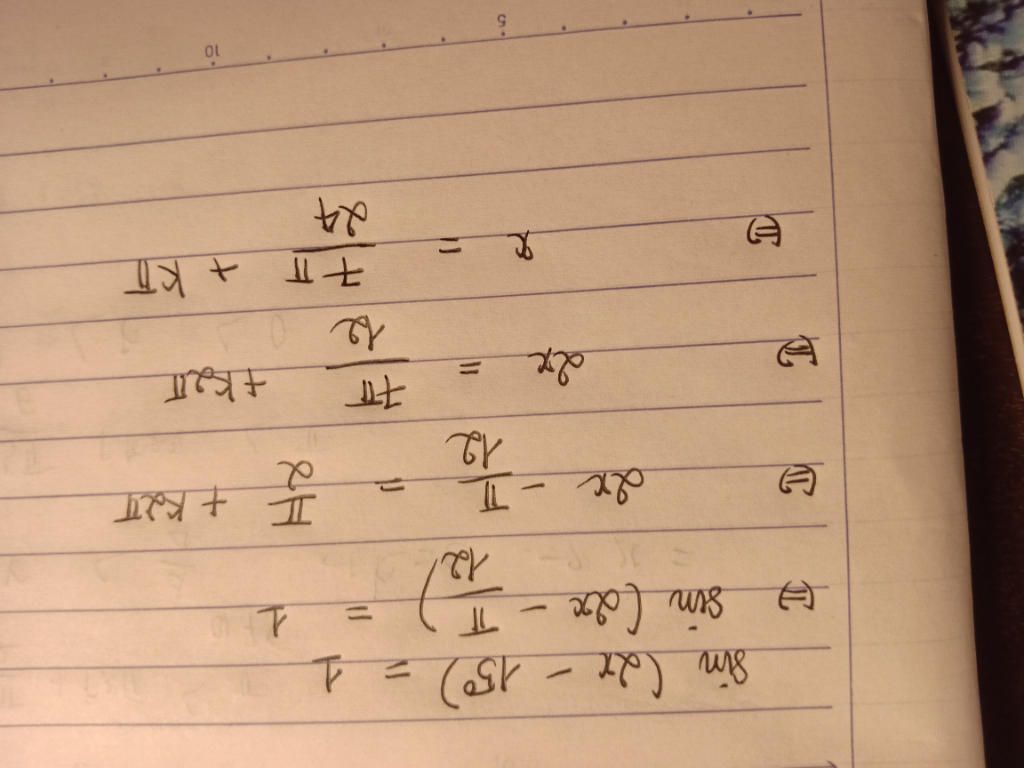 sin (2x - 15°) = 1
(=) sin (2x - π/12) = 1
(=) 2x - π/12 = π/2 + k2π
(=) 2x = 7π/12 + k2π
(=) x = 7π/24 + kπ
5 10